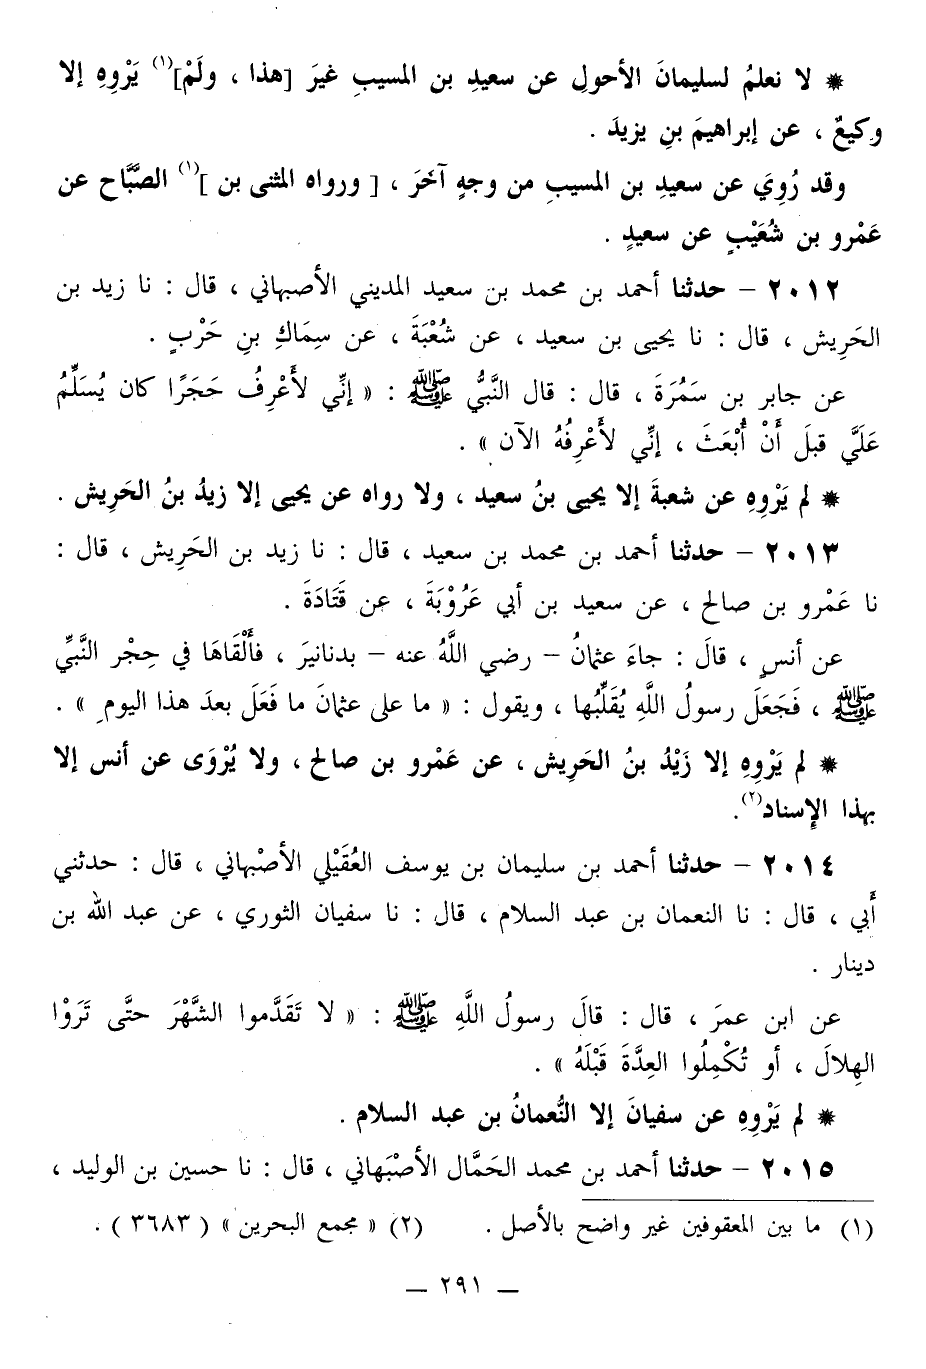 * لا نعلمُ لسليمانَ الأحولِ عن سعيدِ بن المسيبِ غيرَ [هذا ، ولَمْ](١) يَرْوِهِ إلا
وكيعٌ ، عن إبراهيمَ بنِ يزيدَ .
وقد رُوِيَ عن سعيدِ بن المسيبِ من وجهٍ آخَرَ ، [ ورواه المثنى بن ](١) الصَّبَّاح عن
عَمْرو بن شُعَيْبٍ عن سعيدٍ .
٢٠١٢ – حدثنا أحمد بن محمد بن سعيد المديني الأصبهاني ، قال : نا زيد بن
الحَرِيش ، قال : نا يحيى بن سعيد ، عن شُعْبَةَ ، عن سِمَاكِ بنِ حَرْبٍ .
عن جابر بن سَمُرَةَ ، قال : قال النَّبيُّ ﷺ : « إنِّي لأَعْرِفُ حَجَرًا كان يُسَلِّمُ
عَلَيَّ قبلَ أَنْ أُبْعَثَ ، إنِّي لأَعْرِفُهُ الآن » .
* لم يَرْوِهِ عن شعبةَ إلا يحيى بنُ سعيد ، ولا رواه عن يحيى إلا زيدُ بنُ الحَرِيش .
٢٠١٣ – حدثنا أحمد بن محمد بن سعيد ، قال : نا زيد بن الحَرِيش ، قال :
نا عَمْرو بن صالح ، عن سعيد بن أبي عَرُوْبَةَ ، عن قَتَادَةَ .
عن أنسٍ ، قالَ : جاءَ عثمانُ – رضي اللَّهُ عنه – بدنانيرَ ، فأَلْقَاهَا في حِجْر النَّبيِّ
ﷺ ، فَجَعَلَ رسولُ اللَّهِ يُقَلِّبُها ، ويقول : « ما على عثمانَ ما فَعَلَ بعدَ هذا اليومِ » .
* لم يَرْوِهِ إلا زَيْدُ بنُ الحَرِيش ، عن عَمْرو بن صالح ، ولا يُرْوَى عن أنس إلا
بهذا الإِسناد(٢).
٢٠١٤ – حدثنا أحمد بن سليمان بن يوسف العُقَيْلي الأصْبهاني ، قال : حدثني
أَبي ، قال : نا النعمان بن عبد السلام ، قال : نا سفيان الثوري ، عن عبد الله بن
دينار .
عن ابن عمرَ ، قال : قالَ رسولُ اللَّهِ ﷺ : « لا تَقَدَّموا الشَّهْرَ حتَّى تَرَوْا
الهِلالَ ، أو تُكْمِلُوا العِدَّةَ قَبْلَهُ » .
* لم يَرْوِهِ عن سفيانَ إلا النُّعمانُ بن عبد السلام .
٢٠١٥ – حدثنا أحمد بن محمد الحَمَّال الأصْبَهاني ، قال : نا حسين بن الوليد ،
(١) ما بين المعقوفين غير واضح بالأصل . (٢) « مجمع البحرين » ( ٣٦٨٣ ) .
— ٢٩١ —